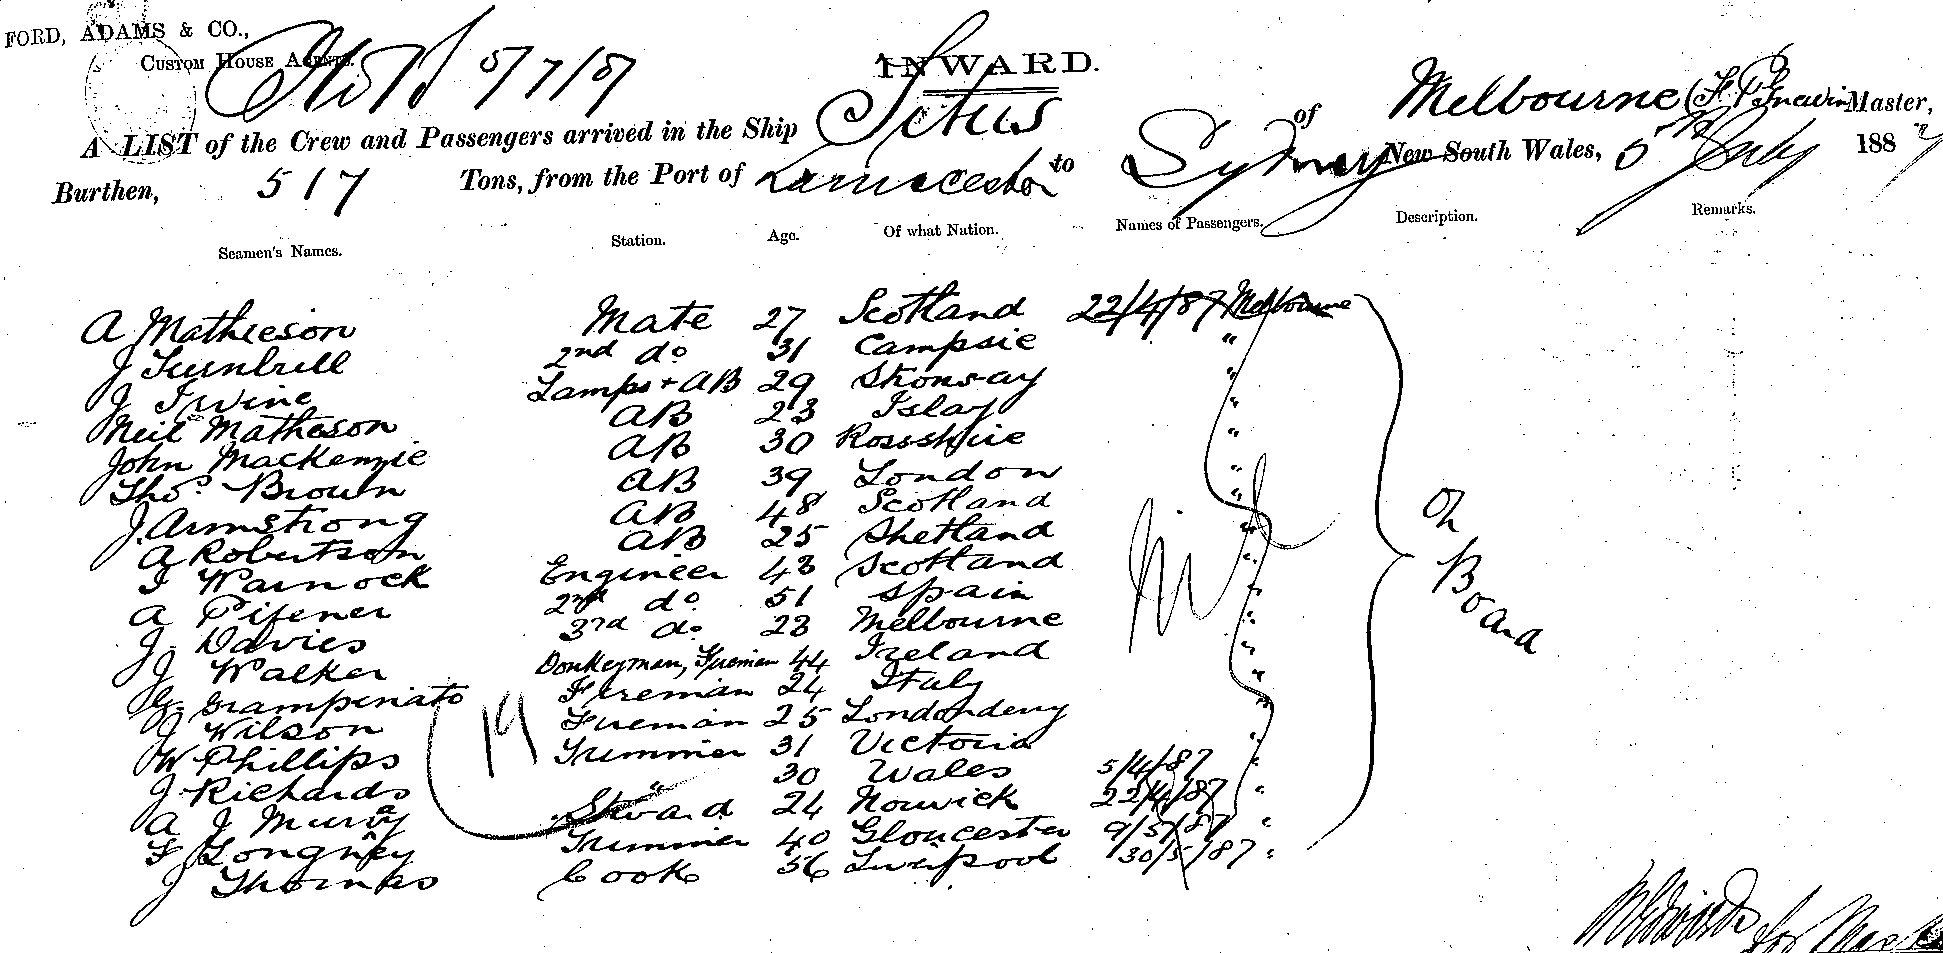 FORD, ADAMS & CO.,
CUSTOM HOUSE AGENTS.
5/7/87
INWARD.
A LIST of the Crew and Passengers arrived in the Ship Titus of Melbourne Master,
Burthen, 517 Tons, from the Port of Launceston to Sydney New South Wales, 5th July 1887
Seamen's Names. Station. Age. Of what Nation. Names of Passengers. Description. Remarks.
A Mathieson Mate 27 Scotland 22/4/87 Melbourne
J Turnbull 2nd do 31 Campsie "
J Irvine Lamps + AB 29 Stronsay "
Neil Matheson AB 23 Islay "
John Mackenzie AB 30 Rossshire "
Thos. Brown AB 39 London "
J. Armstrong AB 48 Scotland "
A Robertson AB 25 Shetland "
Warnock Engineer 43 Scotland "
A Pifener 2nd do. 51 Spain "
J. Davies 3rd do. 23 Melbourne "
J Walker Donkeyman, Fireman 44 Ireland "
G. Grampinato Fireman 24 Italy "
J Wilson Fireman 25 Londonderry "
W Phillips Trimmer 31 Victoria "
J Richards " 30 Wales 5/4/87 "
A J Murray Steward 24 Norwick 22/4/87 "
F Longney Trimmer 40 Gloucester 9/5/87 "
J Thomas Cook 56 Liverpool 30/5/87 "
19
Nil
On Board
for Master